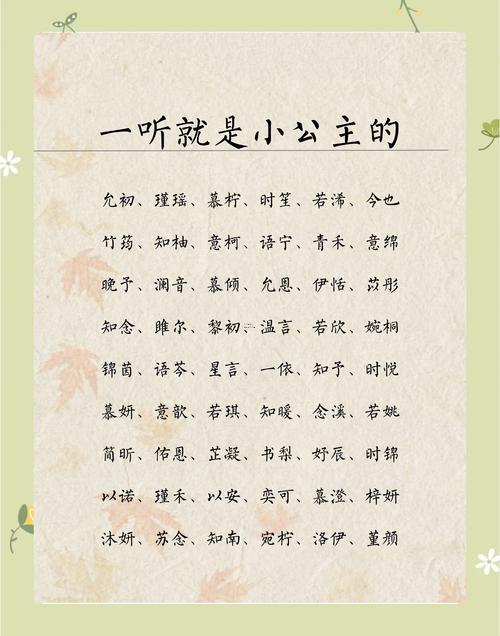 一听就是小公主的
允初、瑾瑶、慕柠、时笙、若浠、今也
竹筠、知柚、意柯、语宁、青禾、意绵
晚予、澜音、慕倾、允恩、伊恬、苡彤
知念、雎尔、黎初、温言、若欣、婉桐
锦茵、语芩、星言、一依、知予、时悦
慕妍、意歆、若琪、知暖、念溪、若姚
简昕、佑恩、芷凝、书梨、妤辰、时锦
以诺、瑾禾、以安、奕可、慕澄、梓妍
沐妍、苏念、知南、宛柠、洛伊、堇颜